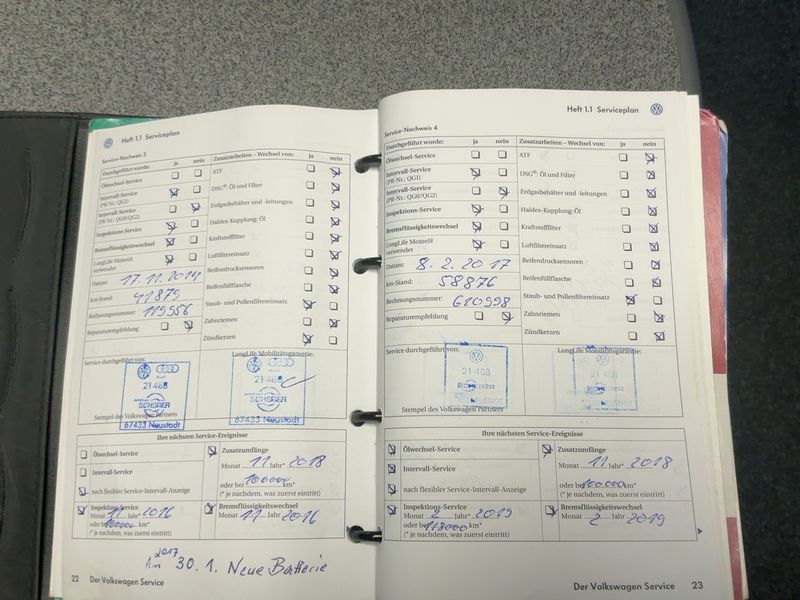 Heft 1.1 Serviceplan
Service-Nachweis 3
Durchgeführt wurde: ja nein
Ölwechsel-Service
Intervall-Service
(PR-Nr.: QG1)
Intervall-Service
(PR-Nr.: QG0/QG2)
Inspektions-Service
Bremsflüssigkeitswechsel
LongLife Motoröl
verwendet
Datum: 17.11.2014
km-Stand: 41879
Rechnungsnummer: 119956
Reparaturempfehlung
Zusatzarbeiten – Wechsel von: ja nein
ATF
DSG®: Öl und Filter
Erdgasbehälter und -leitungen
Haldex-Kupplung: Öl
Kraftstofffilter
Luftfiltereinsatz
Reifendrucksensoren
Reifenfüllflasche
Staub- und Pollenfiltereinsatz
Zahnriemen
Zündkerzen
Service durchgeführt von:
LongLife Mobilitätsgarantie:
21 488
SCHERER
67433 Neustadt
21 488
SCHERER
67433 Neustadt
Stempel des Volkswagen Partners
Ihre nächsten Service-Ereignisse
Ölwechsel-Service
Intervall-Service
nach flexibler Service-Intervall-Anzeige
Zusatzumfänge
Monat 11 Jahr* 2018
oder bei 100000 km*
(* je nachdem, was zuerst eintritt)
Inspektions-Service
Monat 11 Jahr* 2016
oder bei km*
(* je nachdem, was zuerst eintritt)
Bremsflüssigkeitswechsel
Monat 11 Jahr 2016
2017
Am 30.1. Neue Batterie
22 Der Volkswagen Service
Heft 1.1 Serviceplan
Service-Nachweis 4
Durchgeführt wurde: ja nein
Ölwechsel-Service
Intervall-Service
(PR-Nr.: QG1)
Intervall-Service
(PR-Nr.: QG0/QG2)
Inspektions-Service
Bremsflüssigkeitswechsel
LongLife Motoröl
verwendet
Datum: 8.2.2017
km-Stand: 58876
Rechnungsnummer: 610998
Reparaturempfehlung
Zusatzarbeiten – Wechsel von: ja nein
ATF
DSG®: Öl und Filter
Erdgasbehälter und -leitungen
Haldex-Kupplung: Öl
Kraftstofffilter
Luftfiltereinsatz
Reifendrucksensoren
Reifenfüllflasche
Staub- und Pollenfiltereinsatz
Zahnriemen
Zündkerzen
Service durchgeführt von:
LongLife Mobilitätsgarantie:
21 488
SCHERER
NEUSTADT
21 488
Stempel des Volkswagen Partners
Ihre nächsten Service-Ereignisse
Ölwechsel-Service
Intervall-Service
nach flexibler Service-Intervall-Anzeige
Zusatzumfänge
Monat 11 Jahr* 2018
oder bei 100000 km*
(* je nachdem, was zuerst eintritt)
Inspektions-Service
Monat 2 Jahr* 2019
oder bei 118000 km*
(* je nachdem, was zuerst eintritt)
Bremsflüssigkeitswechsel
Monat 2 Jahr 2019
Der Volkswagen Service 23